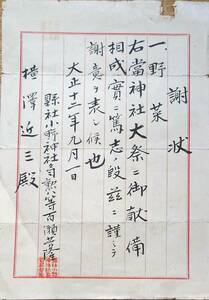 謝状
一、野菜
右當神社大祭ニ御献備
相成實ニ篤志ノ段茲ニ謹ミテ
謝意ヲ表シ候也
大正十二年九月一日
縣社小野神社司勲八等百瀬
横澤近三殿